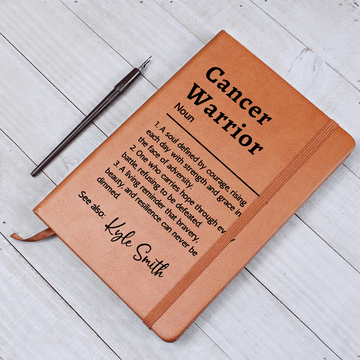 Cancer
Warrior
Noun
1. A soul defined by courage rising
each day with strength and grace in
the face of adversity.
2. One who carries hope through
battle, refusing to be defeated.
3. A living reminder that bravery,
beauty, and resilience can never be
dimmed.
See also:
Kyle Smith